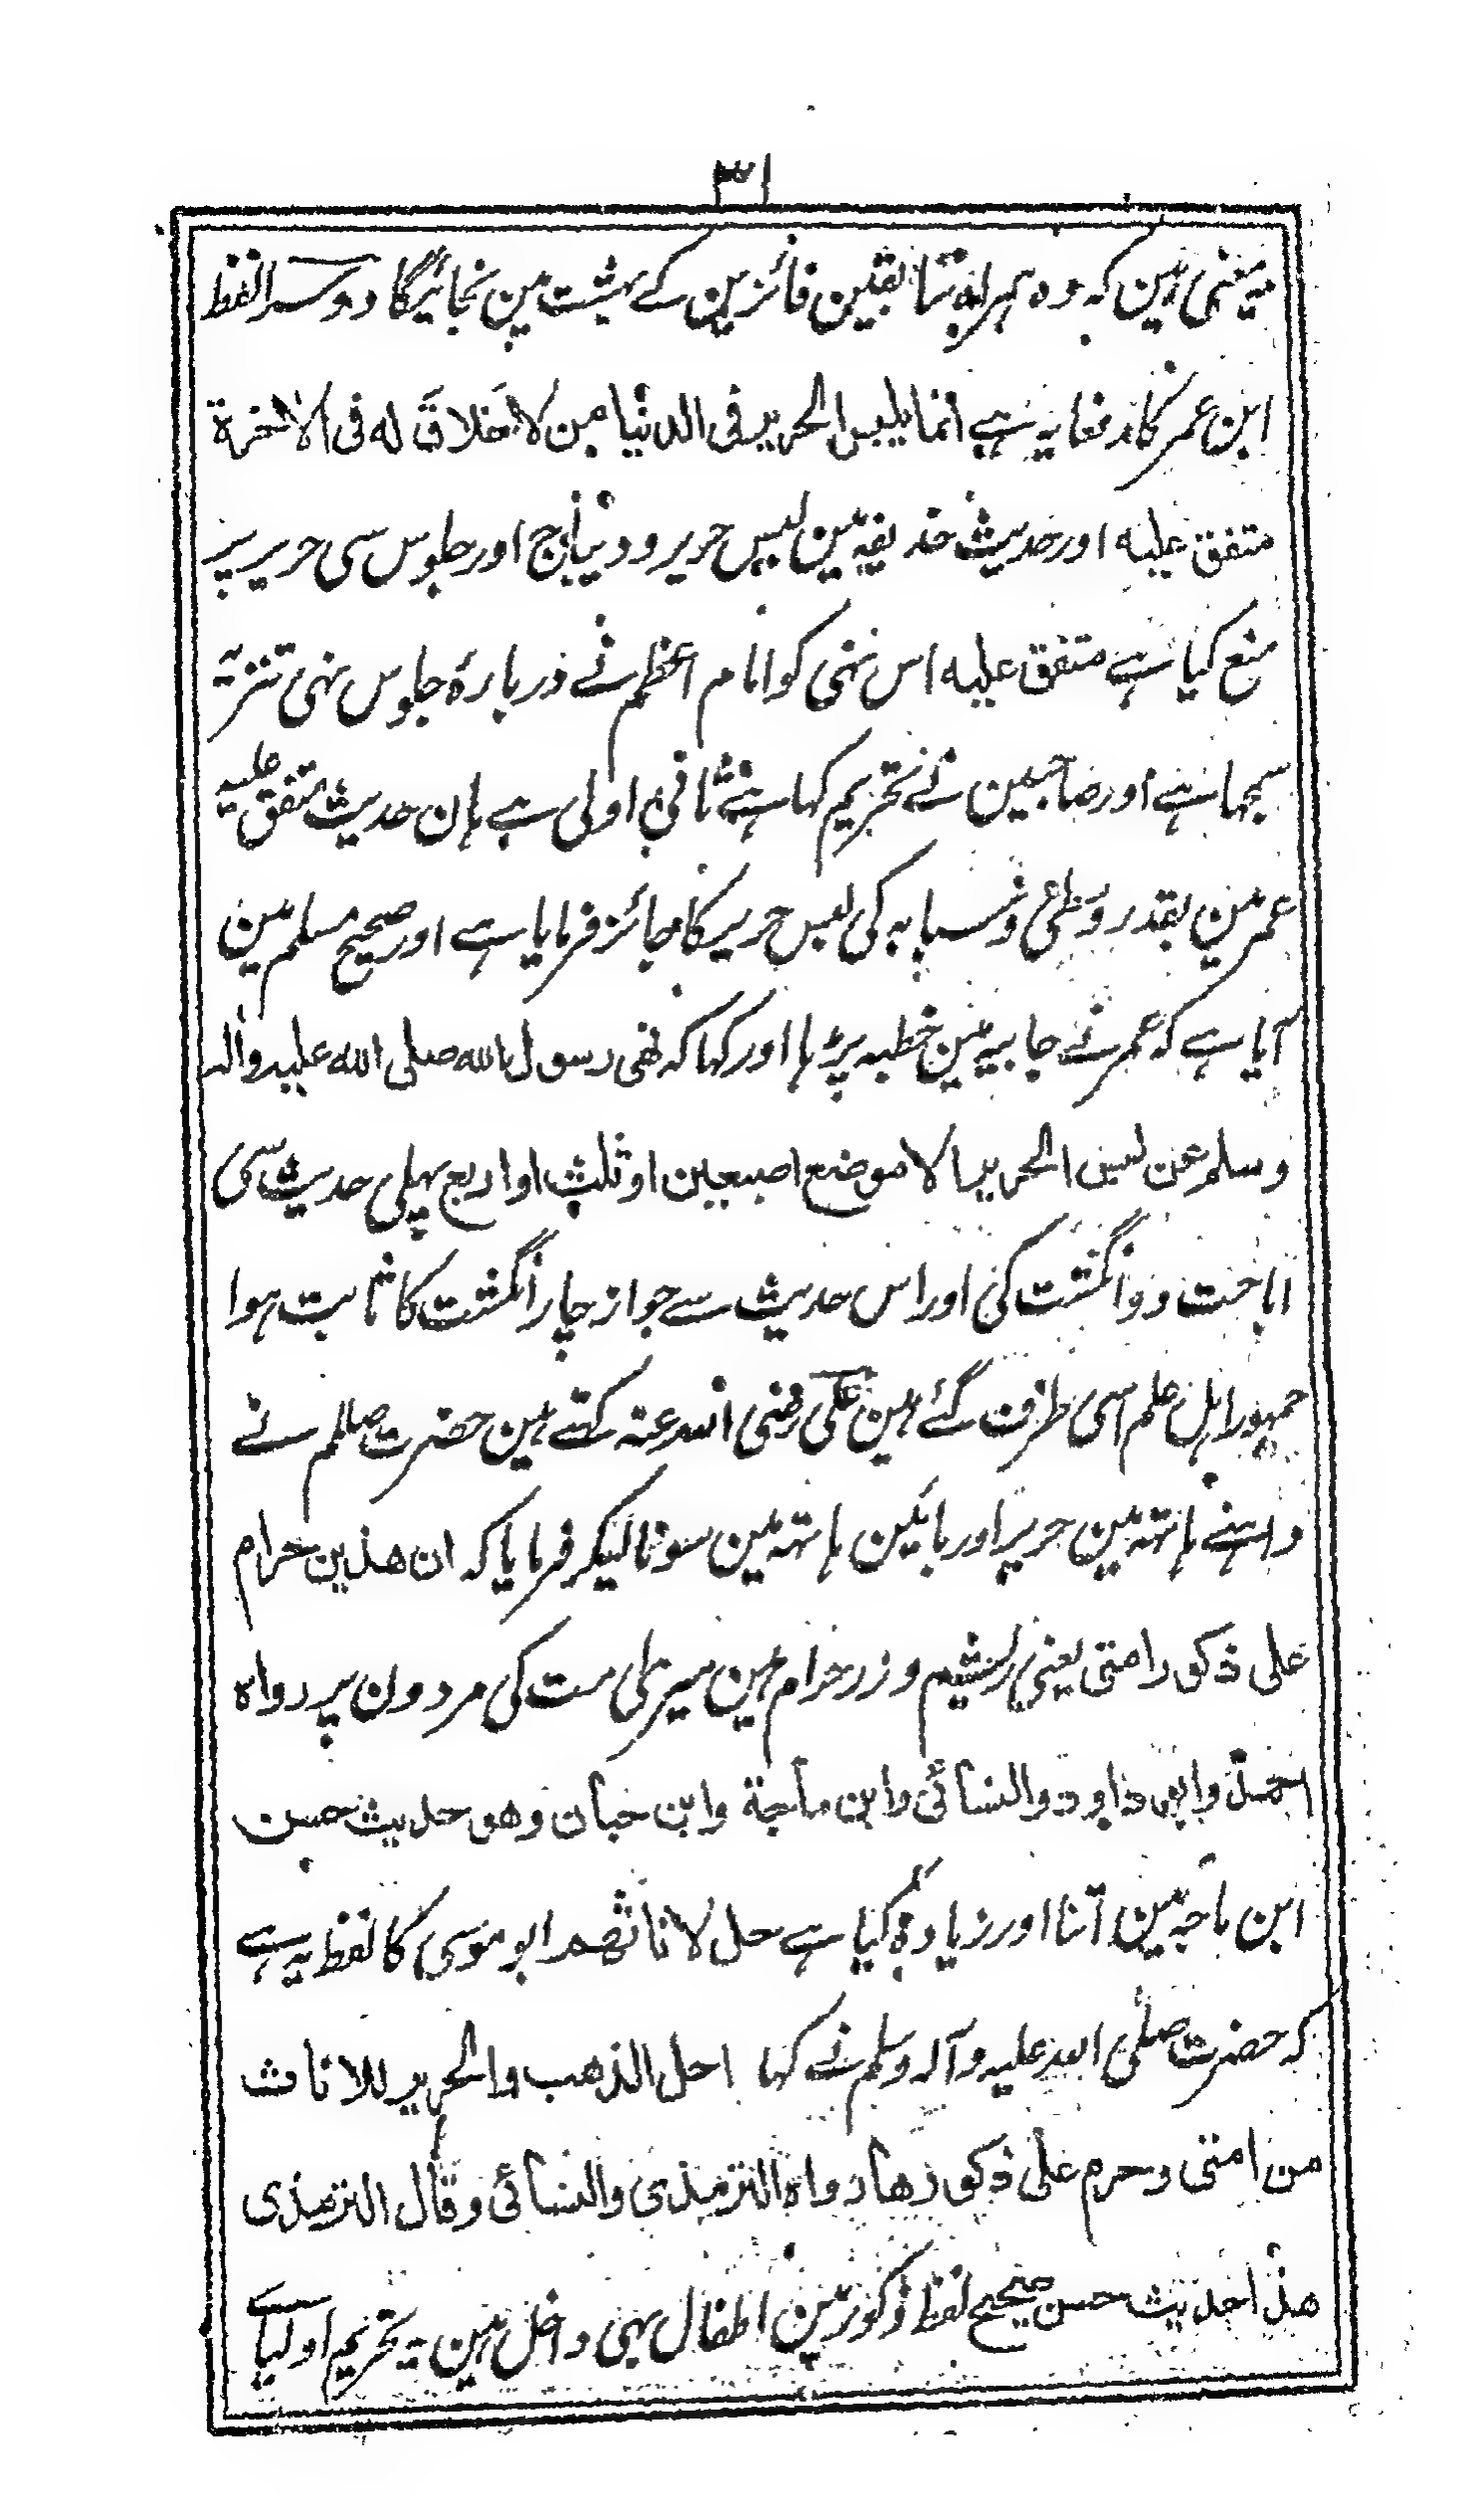 ۳۱
یہ معنی ہین کہ وہ ہمراہ سابقین فائزین کے بہشت مین نجائیگا دوسرا لفظ
ابن عمر کا رفعا یہ ہے انما یلبس الحریر فی الدنیا من لا خلاق له فی الاخرة
متفق علیه اور حدیث حذیفہ مین لبس حریر و دیباج اور جلوس سی حریر پر
منع کیا ہے متفق علیه اس نہی کو امام اعظم نے دربارۂ جلوس نہی تنزیہ
سمجہا ہے اور صاحبین نے تحریم کہا ہے ثانی اولی ہے ہان حدیث متفق علیہ
عمر مین بقدر وسطی و سبابہ کی لبس حریر کا جائز فرمایا ہے اور صحیح مسلم مین
آیا ہے کہ عمر نے جابیہ مین خطبہ پڑہا اور کہا کہ نهی رسول الله صلی الله علیه واله
وسلم عن لبس الحریر الا موضع اصبعین او ثلث او اربع پہلی حدیث سی
اباحت دو انگشت کی اور اس حدیث سے جواز چار انگشت کا ثابت ہوا
جمہور اہل علم اسی طرف گئے ہین علی رضی اللہ عنہ کہتے ہین حضرت صللم نے
داہنے ہاتہہ مین حریر اور بائین ہاتہہ مین سونا لیکر فرمایا کہ ان هذین حرام
علی ذکور امتی یعنی ریشیم و زر حرام ہین میری امت کی مردون پر رواه
احمد وابو داود والنسائی وابن ماجة وابن حبان وهو حدیث حسن
ابن ماجہ مین اتنا اور زیادہ کیا ہے حل لاناثهم ابو موسی کا لفظ یہ ہے
کہ حضرت صلی اللہ علیہ وآلہ وسلم نے کہا احل الذهب والحریر للاناث
من امتی وحرم علی ذکورها رواه الترمذی والنسائی وقال الترمذی
هذا حدیث حسن صحیح لفظ ذکور مین اطفال بہی داخل ہین یہ تحریم اولیا کے